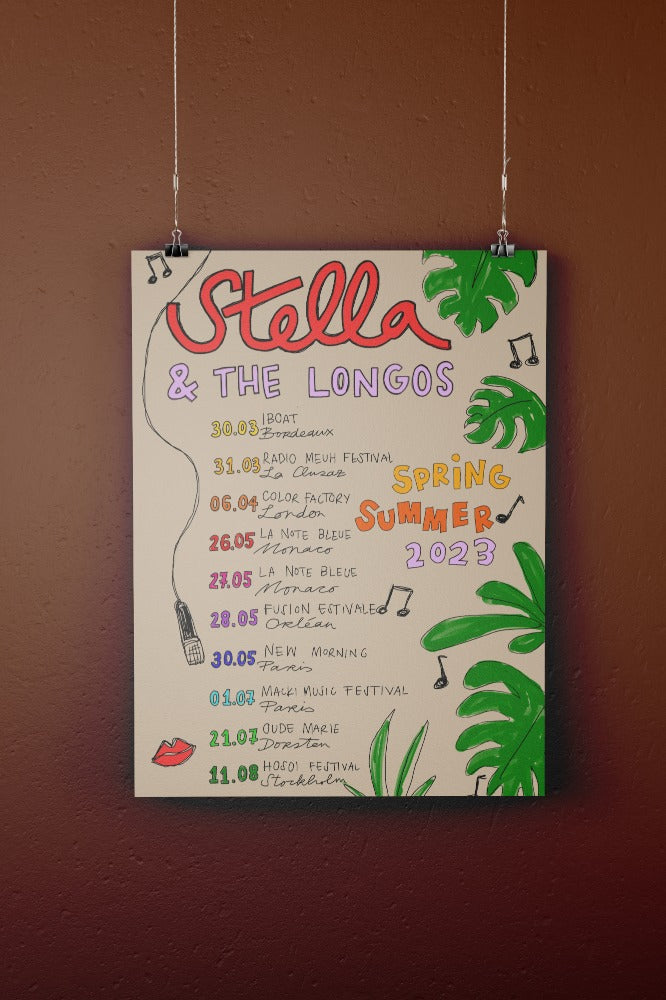 Stella
& THE LONGOS
30.03 IBOAT
Bordeaux
31.03 RADIO MEUH FESTIVAL
La Clusaz
06.04 COLOR FACTORY
London
26.05 LA NOTE BLEUE
Monaco
27.05 LA NOTE BLEUE
Monaco
28.05 FUSION ESTIVALE
Orléan
30.05 NEW MORNING
Paris
01.07 MACKI MUSIC FESTIVAL
Paris
21.07 OUDE MARIE
Dorsten
11.08 HOSOI FESTIVAL
Stockholm
SPRING
SUMMER
2023